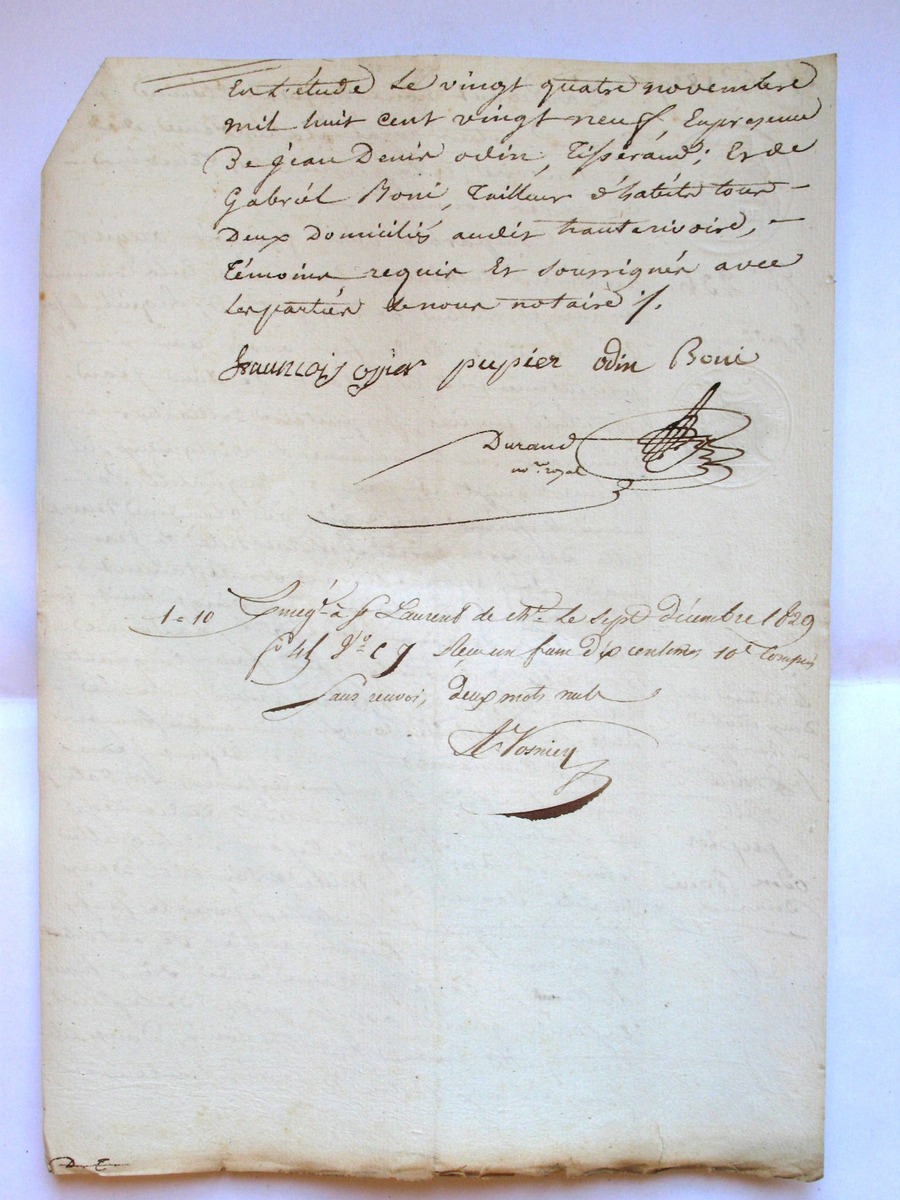 En l'étude le vingt quatre novembre
mil huit cent vingt neuf, En presence
De Jean Denis odin, Tisserand; Et de
Gabriël Boni, Tailleur d'habits tous —
Deux Domiciliés audit hauterivoire, —
témoins requis Et soussignés avec
les partiés & nous notaire ./.
françois ogier pupier odin Boni
Durand
no.re royal
1=10 Enreg.é à St Laurent de Ch. le sept décembre 1829
f.o 45 v.o c 7 Reçu un franc dix centimes 10.e Compris
Sans renvoi, deux mots nuls